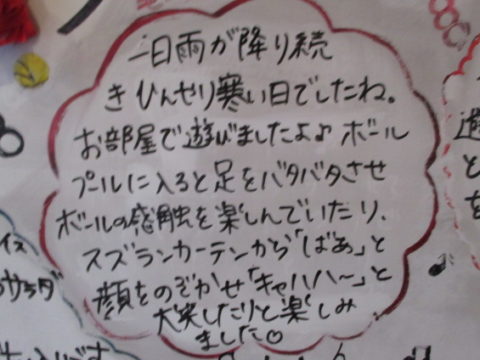 一日雨が降り続
きひんやり寒い日でしたね。
お部屋で遊びましたよ♪♪ ボール
プールに入ると足をバタバタさせ
ボールの感触を楽しんでいたり、
スズランカーテンから「ばあ」と
顔をのぞかせ「キャハハ～」と
大笑したりと楽しみ
ました
遊
と
を
イス
サラダ